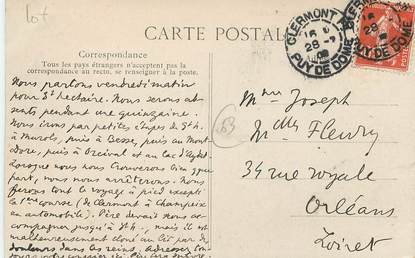 lot
CARTE POSTALE
Correspondance
Tous les pays étrangers n'acceptent pas la
correspondance au recto, se renseigner à la poste.
Nous partons vendredi matin
pour St Nectaire. Nous serons ab-
sents pendant une quinzaine.
Nous irons par petites étapes de St N.
à Murols, puis à Besse, puis au Mont
Dore, puis à Orcival et au lac d'Aydat
Lorsque nous nous trouverons bien quelque
part, nous nous arrêterons. Nous
ferons tout le voyage à pied excepté
la 1ère course (de Clermont à Champeix
en automobile). Père devait nous ac-
compagner jusqu'à St N., mais il est
malheureusement cloué au lit par des
douleurs dans les reins. Adressez
63
Mme Joseph
Mlle Fleury
34 rue royale
Orléans
Loiret
CLERMONT
28 -7
PUY DE DOME
28
PUY DE DOME